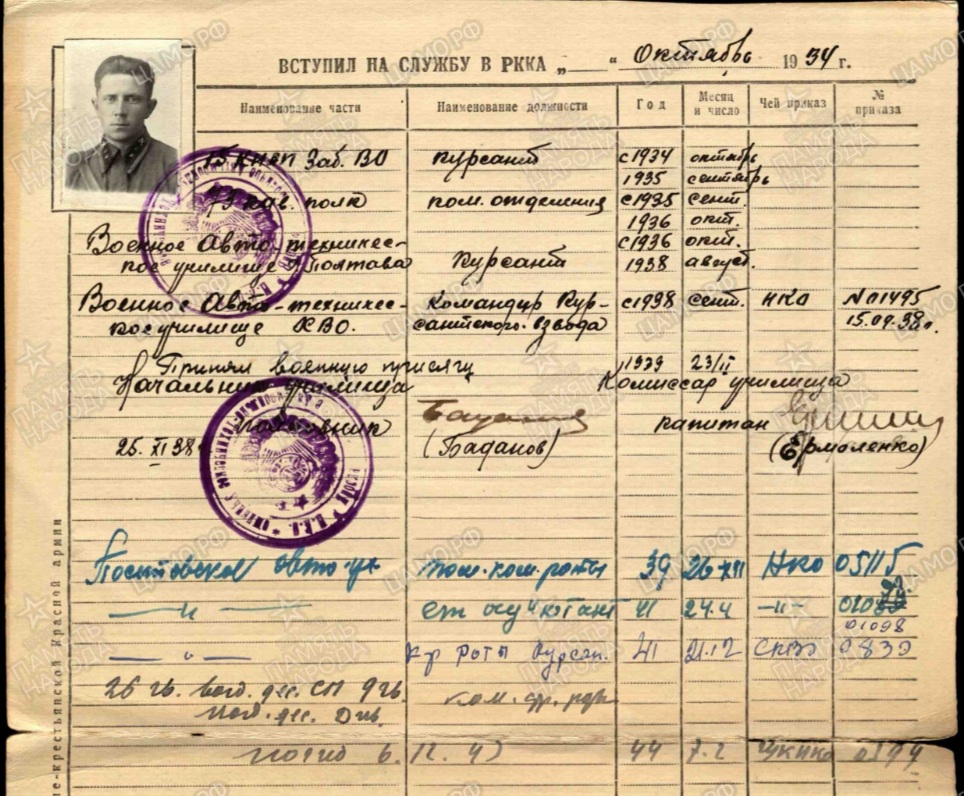 ВСТУПИЛ НА СЛУЖБУ В РККА „ “ Октябрь 1934 г.
Наименование части Наименование должности Год Месяц и число Чей приказ № приказа
Заб. ВО курсант с1934 октябрь
1935 сентябрь
73 кав. полк пом. отделения с1935 сент.
1936 окт.
Военное Авто-техничес- с1936 окт.
кое училище Полтава Курсант 1938 август.
Военное Авто-техничес- Командир Кур- с1938 сент. НКО №01495
кое училище ХВО. сантского взвода 15.09.38г.
Принял военную присягу 1939 23/II
Начальник училища Комиссар училища
полковник капитан
25.XI 38 (Баданов) (Ермоленко)
авто уч пом. ком. роты 39 26 XII НКО 05115
— „ — ст адъютант 41 24.4 —„—
01098
— „ — к-р роты курсан. 41 21.12 СКВО 0830
26 гв. возд. дес. СП 9 гв.
возд. дес. Див.
погиб 6.12.43 44 7.2 0394
ко-Крестьянской Красной армии
ЦАМО.РФ
ПАМЯТЬ НАРОДА